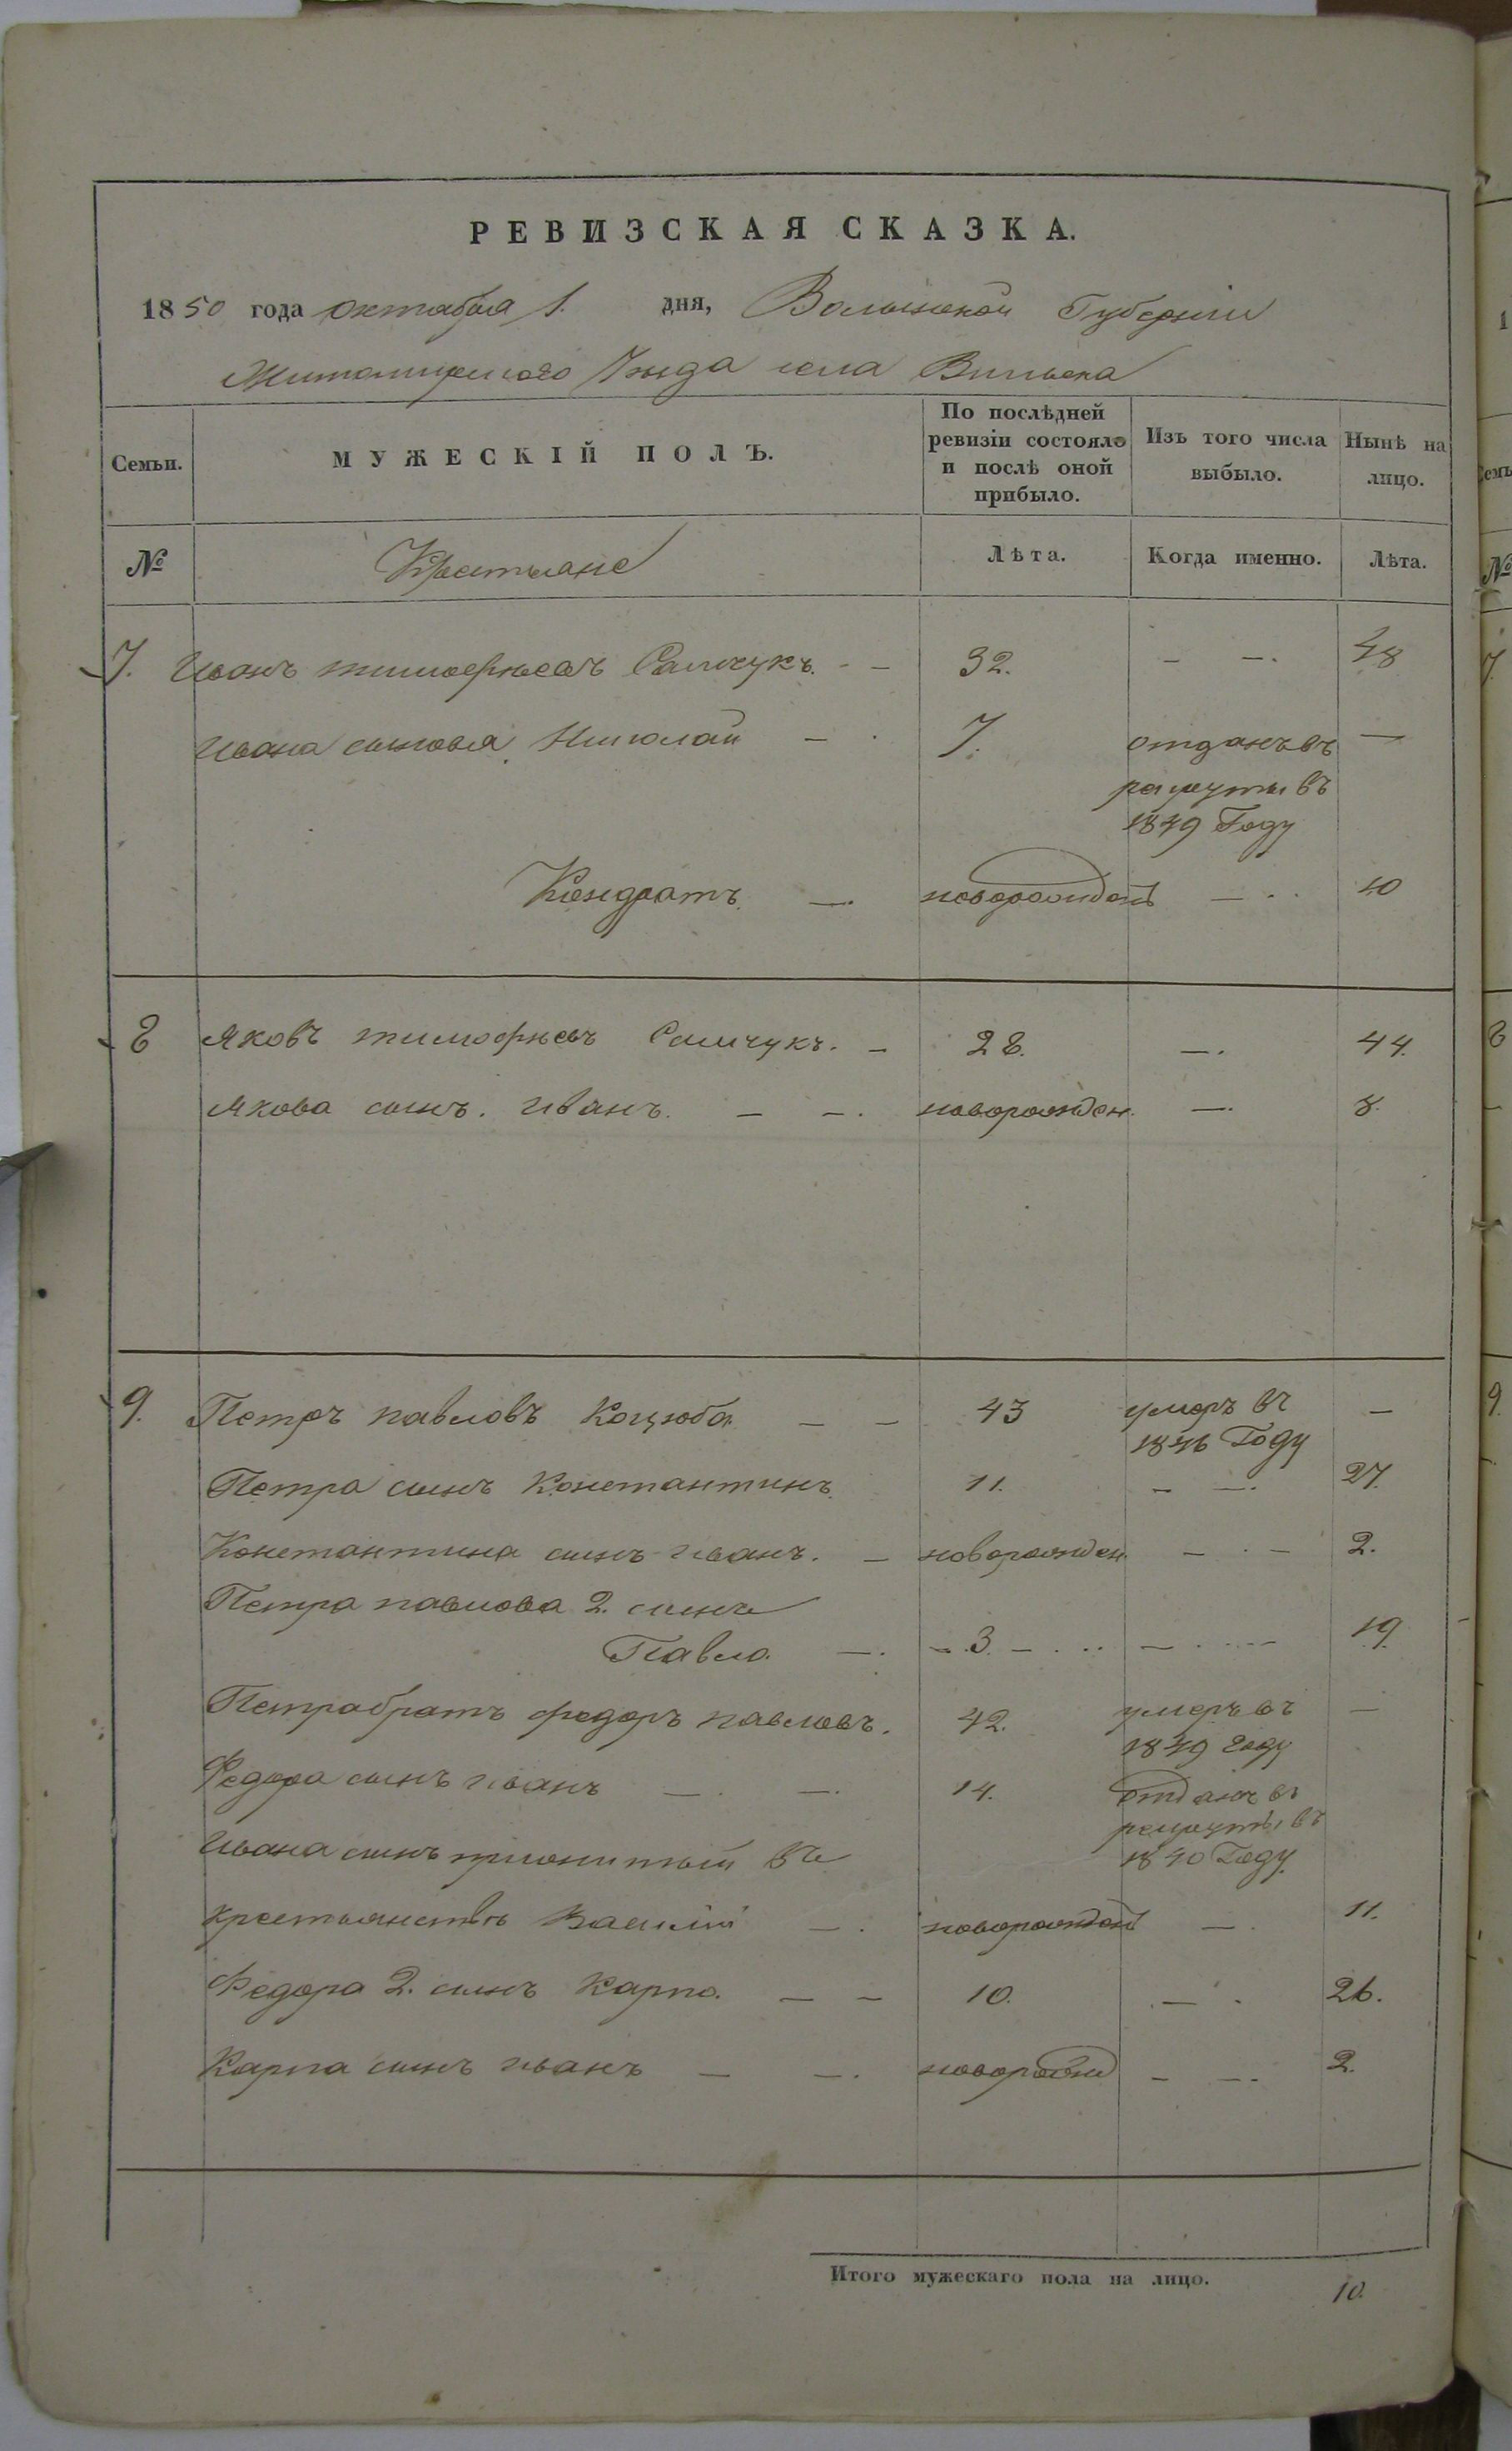 РЕВИЗСКАЯ СКАЗКА.
1850 года октября 1. дня, Волынской Губернии
Житомирского Уезда села Вильска
Семьи. МУЖЕСКІЙ ПОЛЪ. По послѣдней ревизіи состояло и послѣ оной прибыло. Изъ того числа выбыло. Нынѣ на лицо.
№ Крестьяне Лѣта. Когда именно. Лѣта.
7. Иванъ тимофѣевъ Самчукъ. - - 32. - -. 48
Ивана сыновья, Николай - . 7. отданъ въ —
рекруты въ
1849 Году
Кондратъ. —. новорожденъ — . . 10
8 Яковъ тимофѣевъ Самчукъ. - 28. —. 44.
Якова сынъ. иванъ. - -. новорожден. —. 8.
9. Петръ павловъ Коцюба - - 43 умеръ въ —
1846 Году
Петра сынъ Константинъ. 11. - -. 27.
Константина сынъ иванъ. - новорожден. - . - 2.
Петра павлова 2. сынъ
Павло. —. - .3. - . .. — . ... 19.
Петра братъ федоръ павловъ. 42. умеръ въ —
1849 году
Федора сынъ иванъ - . -. 14. отданъ въ
рекруты въ
Ивана сынъ приж��тый въ 1840 Году.
крестьянствѣ Василій - . новорожденъ - . 11.
Федора 2. сынъ Карпо. - - 10. . - . 26.
Карпа сынъ иванъ - -. новорожд - -. 2.
Итого мужескаго пола на лицо. 10.